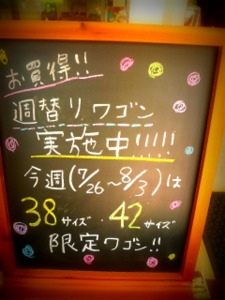 お買得!!
週替りワゴン
実施中!!!!!
今週(7/26~8/3)は
38サイズ・42サイズ
限定ワゴン!!